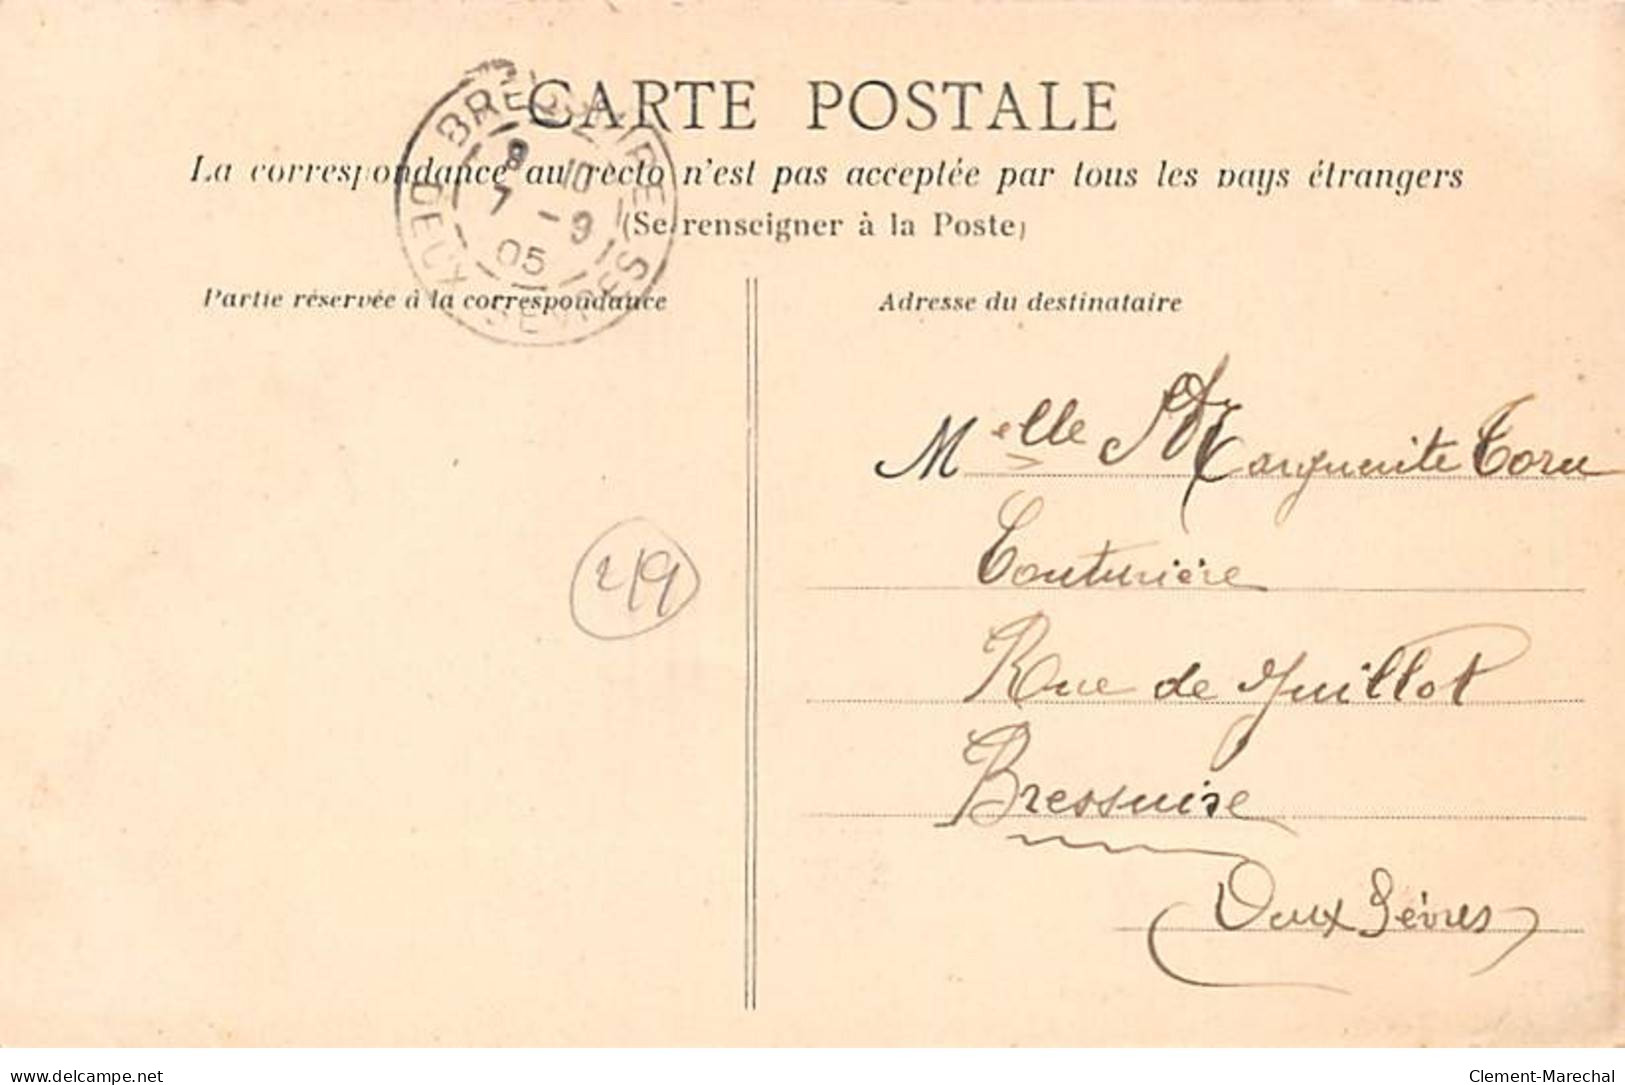 CARTE POSTALE
La correspondance au recto n'est pas acceptée par tous les pays étrangers
(Se renseigner à la Poste)
BRESSUIRE
8 10
7 - 9
05
DEUX SEVRES
Partie réservée à la correspondance
Adresse du destinataire
Melle Marguerite
Couturière
Rue de
Bressuire
Deux Sèvres
49
www.delcampe.net
Clement-Marechal